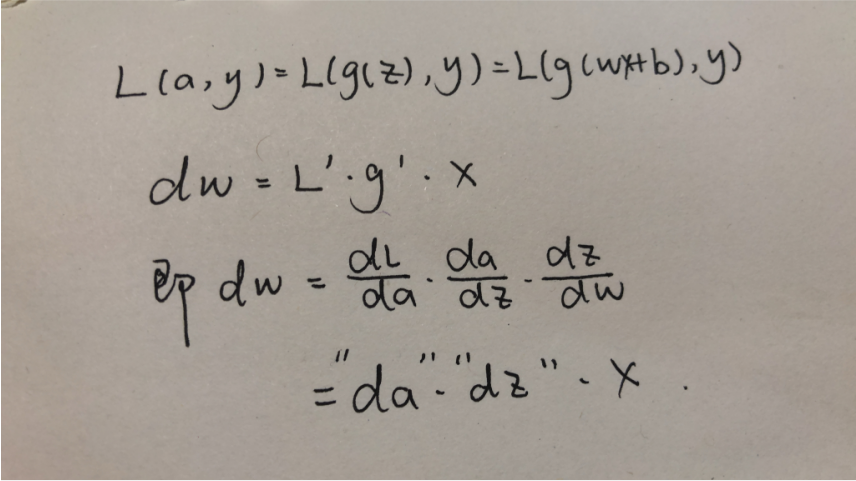 L(a,y)=L(g(z),y)=L(g(wx+b),y)
dw = L'·g'·x
即 dw = dL/da · da/dz · dz/dw
="da"·"dz"·x.